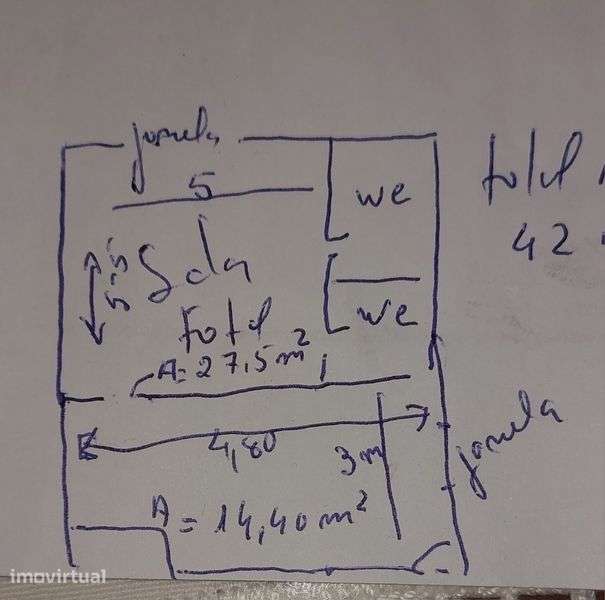 janela
5
wc
total
42
5,5
Sala
total
A=27,5m²
wc
4,80
janela
3m
A=14,40m²
imovirtual